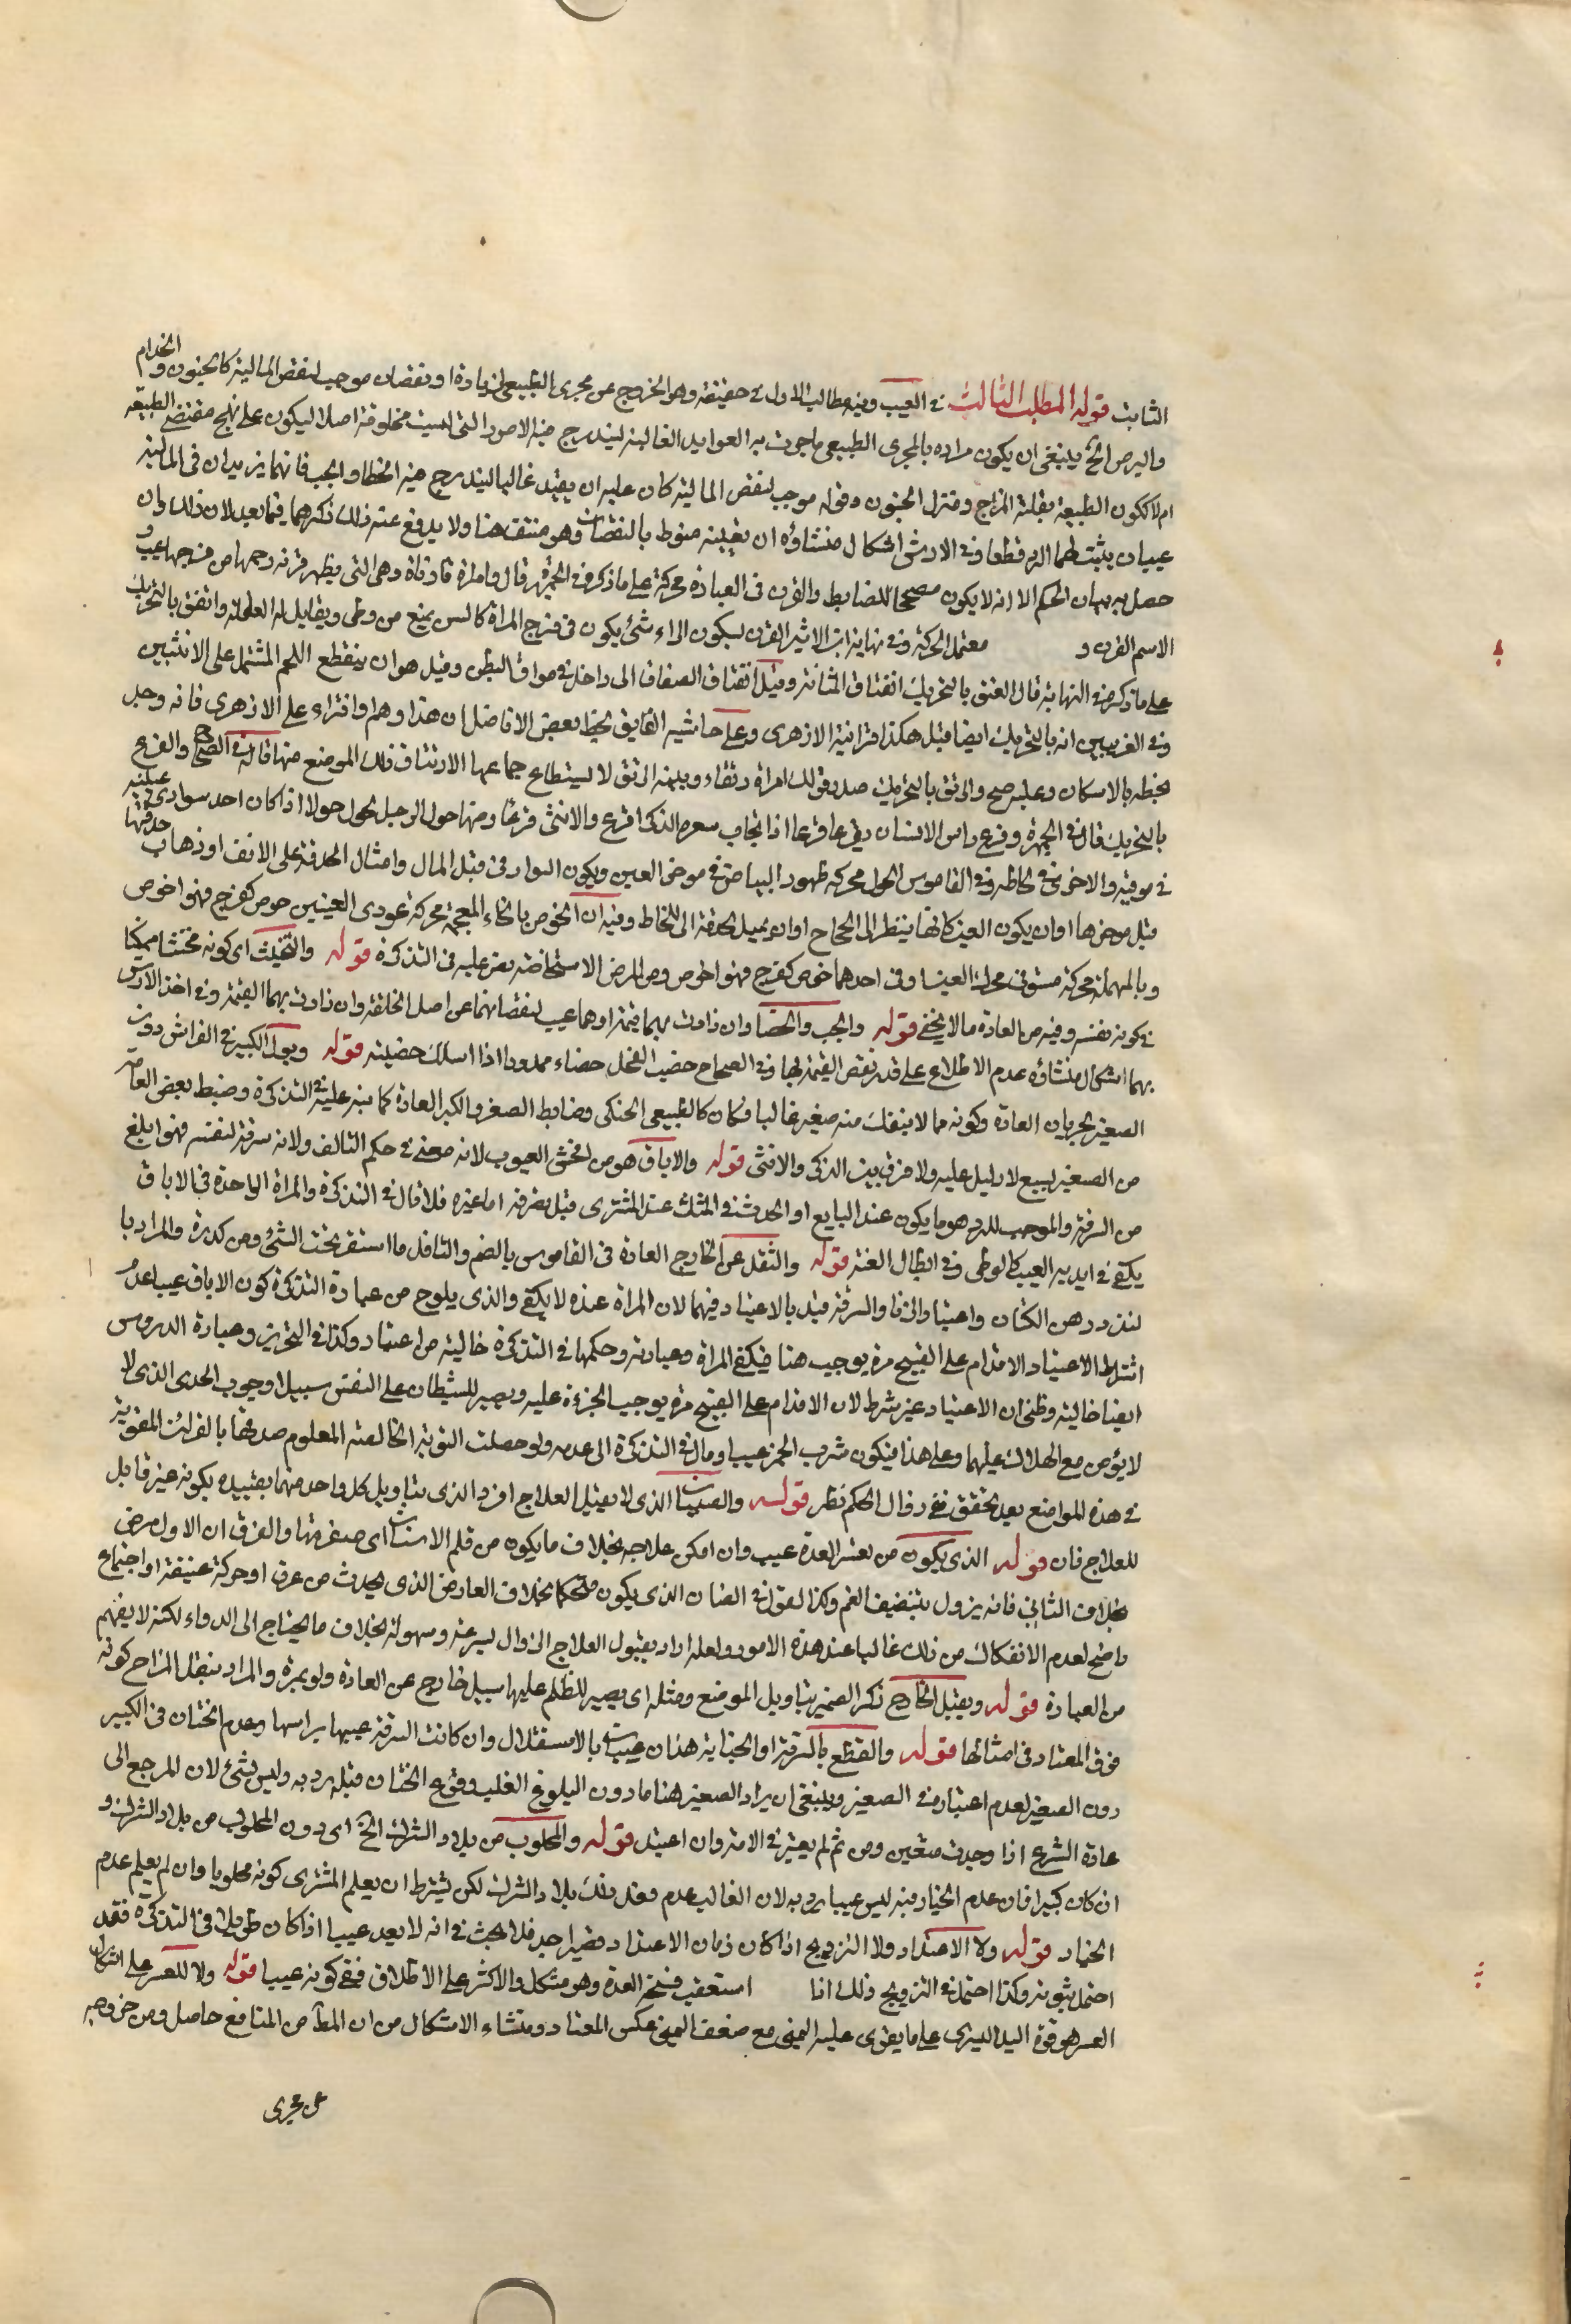 الثابت قوله المطلب الثالث في العيب وفيه مطالب الاول في حقيقته وهو الخروج عن مجرى الطبيعي لزيادة او نقصان موجب لنقص المالية كالجنون والجذام
والبرص الخ ينبغي ان يكون مراده بالمجرى الطبيعي ما جرت به العوايد الغالبة ليندرج فيه الامور التي ليست مخلوقة اصلا ليكون على نهج مقتضى الطبيعة
ام لا ككون الضيعة ثقيلة الخراج ومنزل الجنون وقوله موجب لنقص المالية كان عليه ان يقيد غالبا ليندرج فيه الخصا والجب فانهما يزيدان في المالية
عيبان يثبت لهما الرد قطعا وفي الارش اشكال منشاؤه ان تعيينه منوط بالنقصان وهو منتف هنا ولا يدفع عنه ذلك ذكرهما فيما بعد لان ذلك وان
حصل به بيان الحكم الا انه لا يكون مصححا للضابط والقرن في العبارة محركة على ما ذكره في الجمهرة قال وامراة قرناء وهي التي يظهر قرنة رحمها من فرجها عيب و
الاسم القرن و محتمل الحركة وفي نهاية ابن الاثير القرن بسكون الراء شيء يكون في فرج المراة كالسن يمنع من وطى ويقابل له العفلة والفتق بالتحريك
على ما ذكره في النهاية قال الفتق بالتحريك انفتاق المثانة وقيل انفتاق الصفاق الى داخل في مراق البطن وقيل هو ان ينقطع اللحم المشتمل على الانثيين
وفي الغريبين انه بالتحريك ايضا قيل هكذا قرانية الازهرى وعلى حاشية الفايق بخط بعض الافاضل ان هذا وهم وافتراء على الازهرى فانه وجد
بخطه بالاسكان وعليه صح والرتق بالتحريك مصدر قولك امراة رتقاء وبينه الرتق لا يستطاع جماعها الارتتاق ذلك الموضع منها قاله في الصحاح والقرع
بالتحريك قال في الجمهرة وقرع راس الانسان يقرع قرعا اذا انجاب شعره الذكر اقرع والانثى قرعا ومنها حول الرجل يحول حولا اذا كان احد سوادى عينيه
في موقه والاخرى في لحاظه وفي القاموس الحول محركة ظهور البياض في موخر العين ويكون السواد في قبل الماق واقبال الحدقة على الانف او ذهاب حدقتها
قبل موخرها او ان يكون العين كانها تنظر الى الحجاج او ان تميل الحدقة الى اللحاظ وفيه ان الخوص بالخاء المعجمة محركة غور العينين خوص كفرح فهو اخوص
وبالمهملة محركة ضيق في محرك العينين او في احدهما خوص كفرح فهو احوص ومن المرض الاستحاضة نص عليه في التذكرة قوله والتخنيث اى كونه مخنثا ممكنا
في كونه نفسه وفيه من العادة ما لا يخفى قوله والجب والخصا وان زادت بهما قيمته اذ هما عيب لنقصانهما عن اصل الخلقة وان زادت بهما القيمة وفي اخذ الارش
بهما اشكال منشاؤه عدم الاطلاع على قدر نقص القيمة بها وفي الصحاح خصيت الفحل خصاء ممدودا اذا سللت خصيته قوله وبول الكبير في الفراش دون
الصغير لجريان العادة وكونه مما لا ينفك منه صغير غالبا فكان كالطبيعى الحنكى وضابط الصغر والكبر العادة كما نبه عليه في التذكرة وضبط بعض العامة
من الصغير بسبع لا دليل عليه ولا فرق بين الذكر والانثى قوله والاباق هو من افحش العيوب لانه معنى في حكم التالف ولانه سرقة لنفسه فهو ابلغ
من السرقة والموجب للرد هو ما يكون عند البايع او الحدث في الثلث عند المشترى قبل تصرفه اما غيره فلا قال في التذكرة والمراة الواحدة في الاباق
يكفي في ابديه العيب كالوطى في ابطال العنة قوله والثفل عن الخارج العادة في القاموس بالضم والثافل ما استقر تحت الشيء ومن كدرة والمراد با
لبذر دهن الكتان واعتياد الزنا والسرقة قيل بالاعتياد فيهما لان المراة عنده لا يكفي والذى يلوح من عبارة التذكرة كون الاباق عيبا عدم
اشتراط الاعتياد الاقدام على القبيح مرة يوجب هنا فيكفي المراة وعبارته وحكمها في التذكرة خالية من اعتياد وكذا في التحرير وعبارة الدروس
ايضا خالية وظني ان الاعتياد غير شرط لان الاقدام على القبيح مرة يوجب الجرءة عليه ويصير للشيطان على النفس سبيل او وجوب الحد الذي لا
لا يؤمن مع الهلاك عليهما وعلى هذا فيكون شرب الخمر عيبا ومال في التذكرة الى عدمه ولو حصلت التوبة الخالصة المعلوم صدقها بالقرائن المقوية
في هذه المواضع بعد تحقق نفي زوال الحكم نظر قوله والصيبان الذي لا يقبل العلاج افرد الذي بتاويل كل واحد منهما بقبيله بكونه غير قابل
للعلاج فان قوله الذي يكون من تغير المعدة عيب وان امكن علاجه بخلاف ما يكون من قلح الاسنان اى صفرتها والفرق ان الاول مرض
بخلاف الثاني فانه يزول بتنضيف الفم وكذا لقول في الصنان الذي يكون مستحكما بخلاف العارض الذي يحدث من عرق او حركة عنيفة او اجتماع
واضح لعدم الانفكاك من ذلك غالبا عند هذه الامور ولعله اراد بقبول العلاج الزوال بسرعة وسهولة بخلاف ما يحتاج الى الدواء لكنه لا يفهم
من العبارة قوله وثقل الخراج ذكر الضمير بتاويل الموضع ومثله اى يصير للظلم عليها سبيل خارج عن العادة ولو بمرة والمراد بثقل الخراج كونه
فوق المعتاد في امثالها قوله والقطع بالسرقة او الجناية هذان عيبان بالاستقلال وان كانت السرقة عيبا براسها وعدم الختان في الكبير
دون الصغير لعدم اعتباره في الصغير وينبغي ان يراد الصغير هنا ما دون البلوغ الغلب وقوع الختان قبله يرد به وليس بشيء لان المرجع الى
عادة الشرع اذا وجدت متعين ومن ثم لم يعتبر في الامة وان اعتيد قوله والمجلوب من بلاد الشرك الخ اى دون المجلوب من بلاد الشرك و
ان كان كبيرا فان عدم الختان فيه ليس عيبا يرد به لان الغالب عدم فعل ذلك بلاد الشرك لكن يشترط ان يعلم المشترى كونه مجلوبا وان لم يعلم عدم
الختان قوله ولا الاعتداد ولا التزويج اذا كان زمان الاعتداد قصيرا جدا فلا بحث في انه لا يعد عيبا اذا كان طويلا في التذكرة فقد
احتمل ثبوته وكذا احتمل في التزويج ذلك انا استعقب فسخه العدة وهو مشكل والاكثر على الاطلاق في كونه عيبا قوله ولا للعسر على اشكال
العسر هو قوة اليد اليسرى على ما يقوى عليه اليمنى مع ضعف اليمنى عكس المعتاد ومنشاء الاشكال من ان المط من المنافع حاصل ومن خروجه
عن مجرى